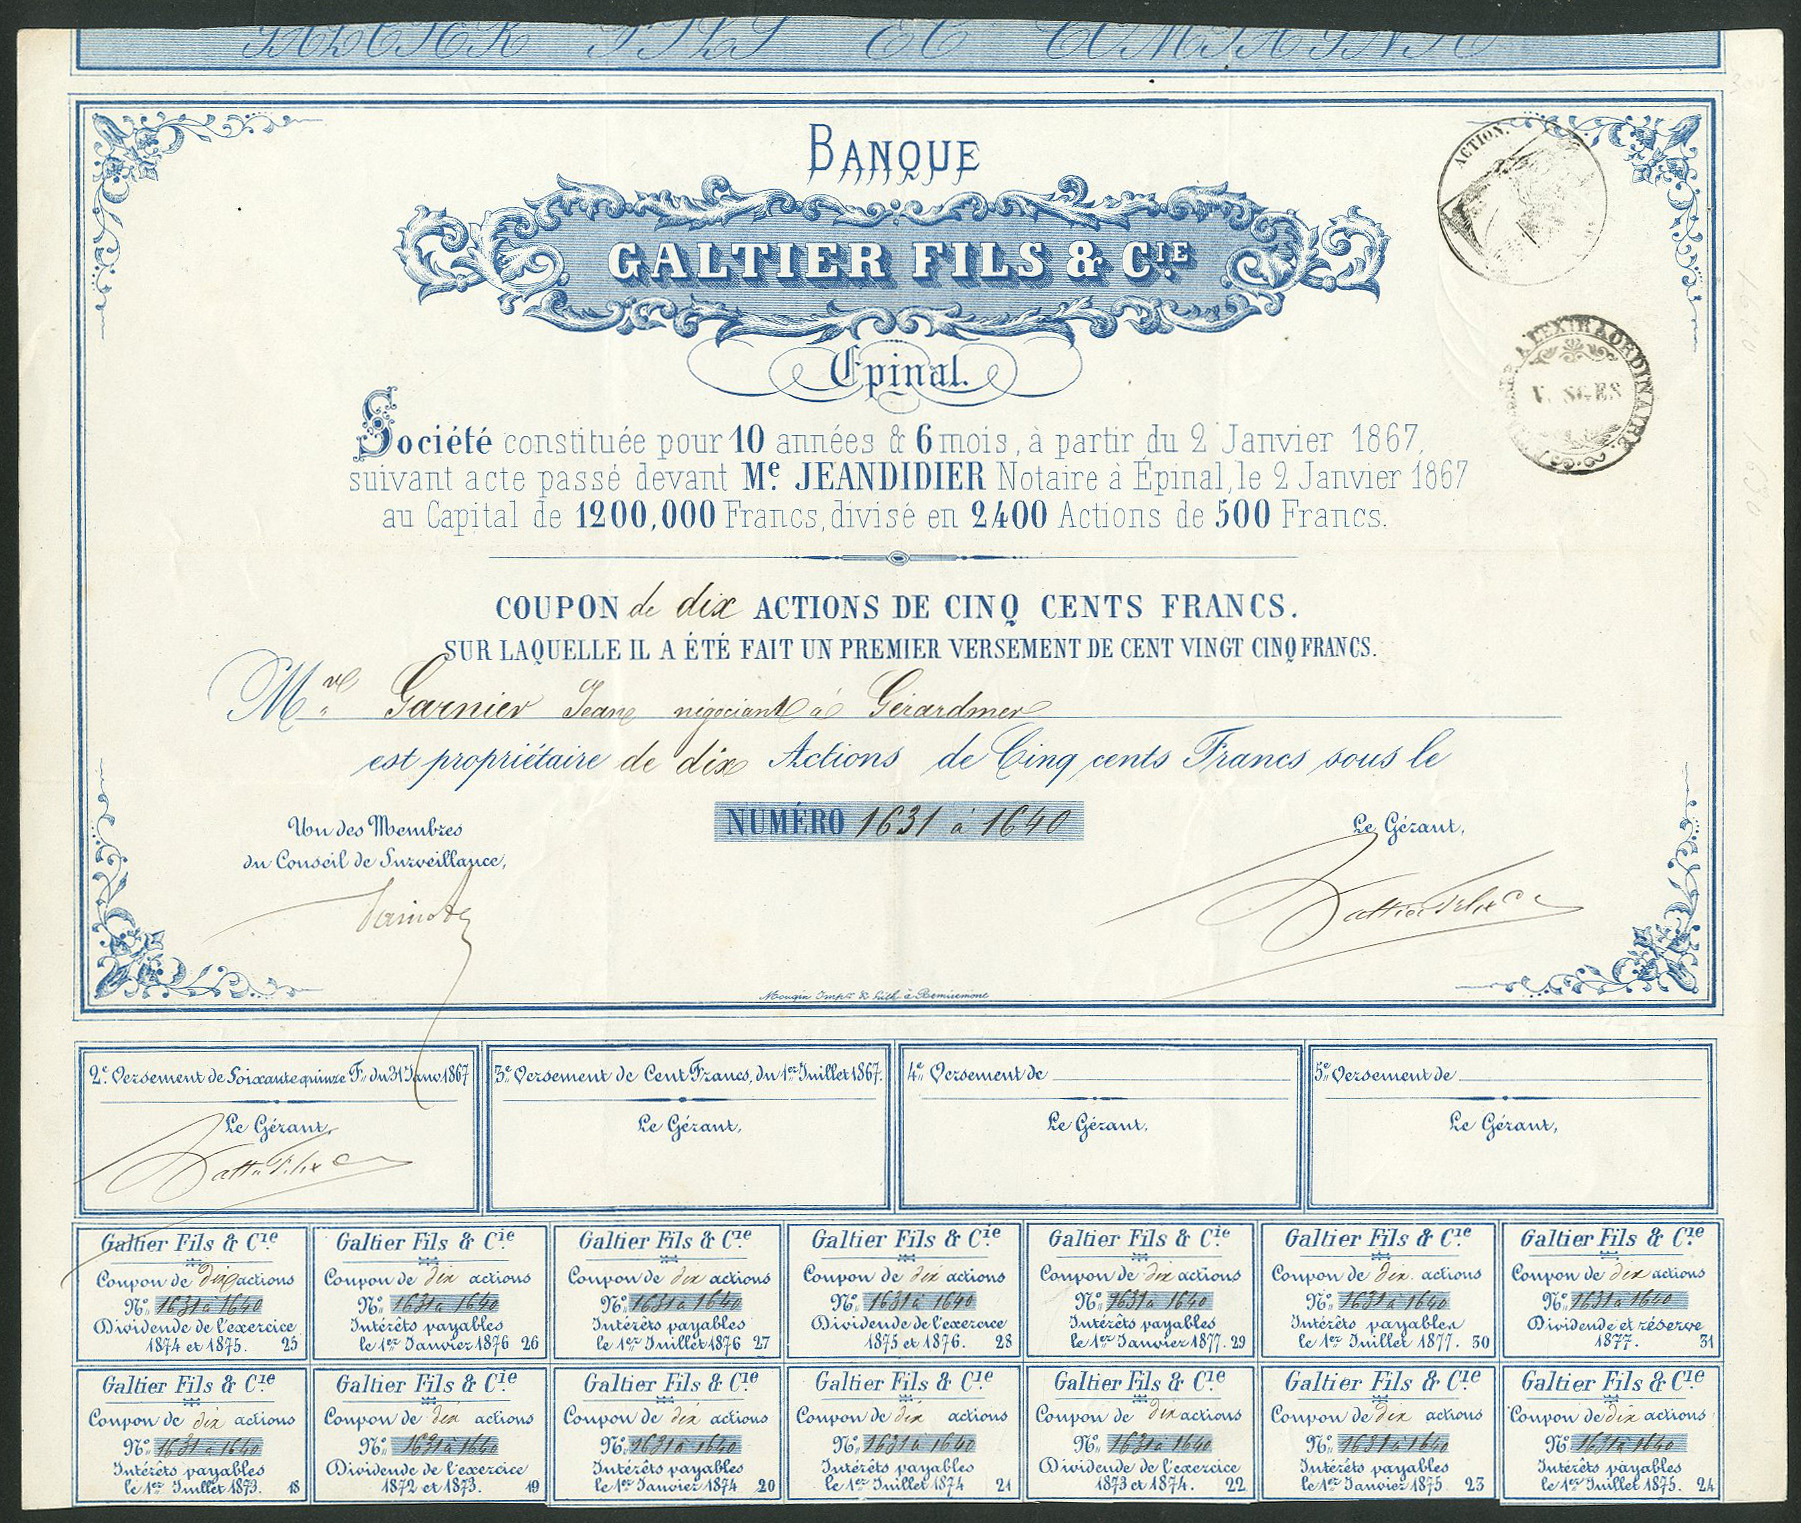 BANQUE
GALTIER FILS & CIE.
Epinal.
Société constituée pour 10 années & 6 mois, à partir du 2 Janvier 1867,
suivant acte passé devant Me. JEANDIDIER Notaire à Épinal, le 2 Janvier 1867
au Capital de 1200,000 Francs, divisé en 2400 Actions de 500 Francs.
COUPON de dix ACTIONS DE CINQ CENTS FRANCS.
SUR LAQUELLE IL A ÉTÉ FAIT UN PREMIER VERSEMENT DE CENT VINGT CINQ FRANCS.
M Garnier Jean négociant à Gérardmer
est propriétaire de dix Actions de Cinq cents Francs sous le
NUMÉRO 1631 à 1640
Un des Membres
du Conseil de Surveillance,
Le Gérant,
Galtier Fils & Cie
Mougin Impr. & Lith. à Remiremont
ACTION.
A L'EXTRAORDINAIRE
2e Versement de Soixante quinze F. du 31 Janv 1867
Le Gérant,
Galtier Fils & C
3e Versement de Cent Francs, du 1er Juillet 1867.
Le Gérant,
4e Versement de
Le Gérant,
5e Versement de
Le Gérant,
Galtier Fils & Cie
Coupon de dix actions
No. 1631 à 1640
Dividende de l'exercice
1874 et 1875. 25
Galtier Fils & Cie
Coupon de dix actions
No. 1631 à 1640
Intérêts payables
le 1er Janvier 1876 26
Galtier Fils & Cie
Coupon de dix actions
No. 1631 à 1640
Intérêts payables
le 1er Juillet 1876 27
Galtier Fils & Cie
Coupon de dix actions
No. 1631 à 1640
Dividende de l'exercice
1875 et 1876. 28
Galtier Fils & Cie
Coupon de dix actions
No. 1631 à 1640
Intérêts payables
le 1er Janvier 1877. 29
Galtier Fils & Cie
Coupon de dix actions
No. 1631 à 1640
Intérêts payables
le 1er Juillet 1877. 30
Galtier Fils & Cie
Coupon de dix actions
No. 1631 à 1640
Dividende et réserve
1877. 31
Galtier Fils & Cie
Coupon de dix actions
No. 1631 à 1640
Intérêts payables
le 1er Juillet 1873. 18
Galtier Fils & Cie
Coupon de dix actions
No. 1631 à 1640
Dividende de l'exercice
1872 et 1873. 19
Galtier Fils & Cie
Coupon de dix actions
No. 1631 à 1640
Intérêts payables
le 1er Janvier 1874 20
Galtier Fils & Cie
Coupon de dix actions
No. 1631 à 1640
Intérêts payables
le 1er Juillet 1874 21
Galtier Fils & Cie
Coupon de dix actions
No. 1631 à 1640
Dividende de l'exercice
1873 et 1874. 22
Galtier Fils & Cie
Coupon de dix actions
No. 1631 à 1640
Intérêts payables
le 1er Janvier 1875 23
Galtier Fils & Cie
Coupon de dix actions
No. 1631 à 1640
Intérêts payables
le 1er Juillet 1875. 24